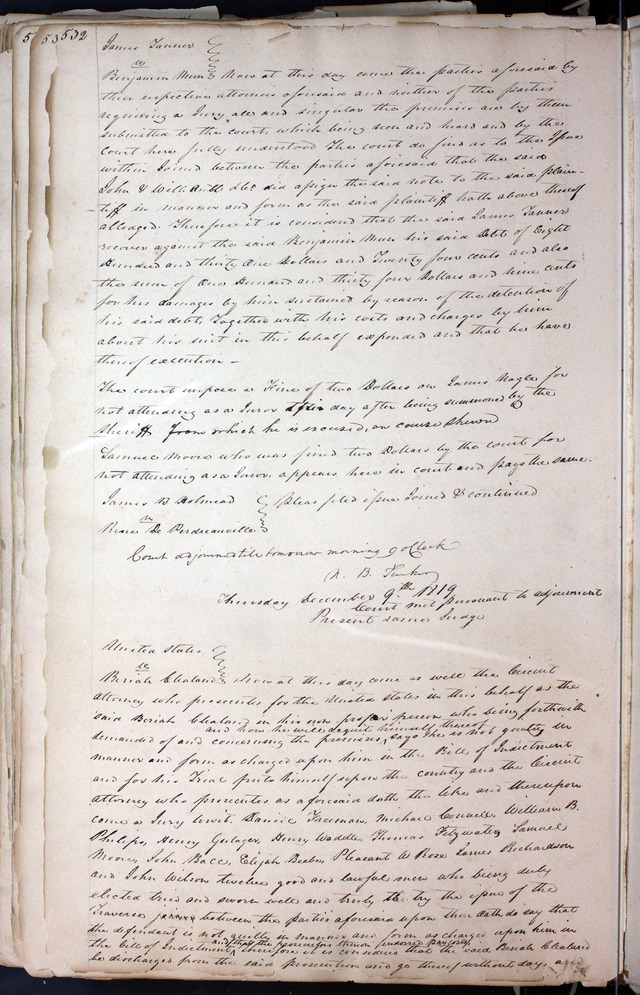 532
James Tanner
vs
Benjamin Munn Now at this day comes the parties aforesaid by
their respective attornies aforesaid and neither of the parties
requiring a Jury all and singular the premises are by them
submitted to the court, which being seen and heard and by the
Court here fully understood The court do find as to the Issue
within Joined between the parties aforesaid that the said
John & Will did assign the said note to the said plain-
-tiff in manner and form as the said plaintiff hath above thereof
alledged. Therefore it is considered that the said James Tanner
recover against the said Benjamin Munn his said Debt of Eight
Hundred and thirty One Dollars and Twenty four cents and also
the sum of One Hundred and thirty four Dollars and nine cents
for his damages by him sustained by reason of the detention of
his said debt, Together with his costs and charges by him
about his suit in this behalf expended and that he have
thereof execution -
The court impose a Fine of two Dollars on James Nagle for
not attending as a Juror this day after being summoned by the
Sheriff From which he is excused, on cause shewn
Samuel Moore who was fined two Dollars by the court for
not attending as a Juror, appears here in court and pays the same.
James B Holmead
vs
Rene De Perdreauville
Pleas filed issue Joined & continued
Court adjourned till tomorrow morning 9 oClock
N. B. Tucker
Thursday December 9th 1819
Court met pursuant to adjournment
Present same Judge
United States
vs
Beriah Cleland Now at this day come as well the Circuit
attorney who prosecutes for the United States in this behalf as the
said Beriah Cleland in his own proper person who being forthwith
demanded of and concerning the premises and how he will acquit himself thereof says he is not guilty in
manner and form as charged upon him in the Bill of Indictment
and for his Trial puts himself upon the country and the Circuit
attorney who prosecutes as aforesaid doth the like and thereupon
came a Jury towit. Daniel Freeman, Michael Connell, William B.
Philips, Henry Geilager, Henry Waddle, Thomas Fitzwater, Samuel
Moore, John Bacc, Elijah Beebe, Pleasant W Rose James Richardson
and John Wilson twelve good and lawful men who being duly
elected tried and sworn well and truly to try the issue of the
Traverse between the parties aforesaid upon their oath do say that
the defendant is not guilty in manner and form as charged upon him in
the bill of Indictment, Therefore it is considered that the said Beriah Cleland
be discharged from the said prosecution and go thereof without day, and